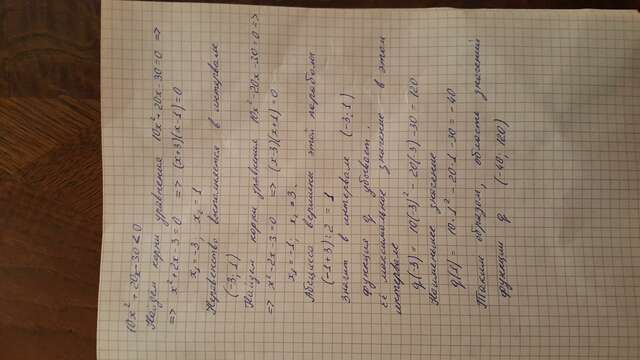 10x² + 20x - 30 < 0
Найдем корни уравнения 10x² + 20x - 30 = 0 =>
=> x² + 2x - 3 = 0 => (x+3)(x-1) = 0
x₁ = -3, x₂ = 1
Неравенство выполняется в интервале
(-3; 1)
Найдем корни уравнения 10x² - 20x - 30 = 0 =>
=> x² - 2x - 3 = 0 => (x-3)(x+1) = 0
x₁ = -1; x₂ = 3.
Абсцисса вершины этой параболы
(-1+3):2 = 1
значит в интервале (-3; 1)
функция g убывает.
Её максимальное значение в этом
интервале
g(-3) = 10(-3)² - 20(-3) - 30 = 120
Наименьшее значение
g(1) = 10·1² - 20·1 - 30 = -40
Таким образом, область значений
функции g (-40; 120)